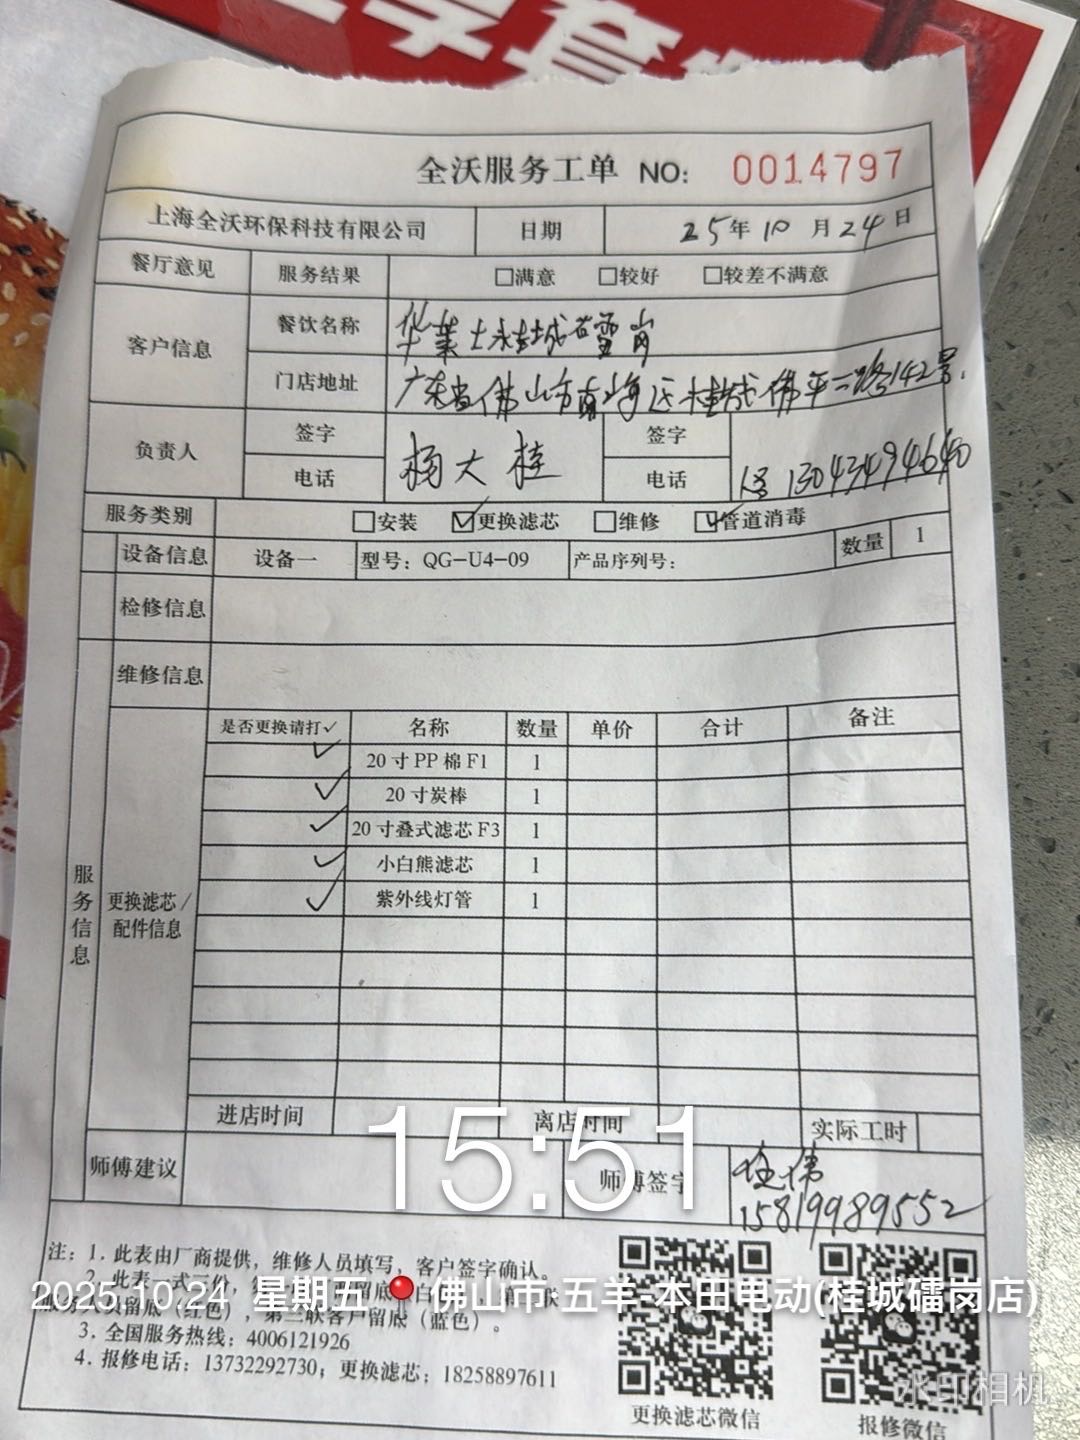 全沃服务工单 NO: 0014797
上海全沃环保科技有限公司 日期 25年10月24日
餐厅意见 服务结果 □满意 □较好 □较差不满意
客户信息 餐饮名称 华莱士桂城
门店地址 广东省佛山市南海区桂城佛平二路142号.
负责人 签字 杨大桂 签字
电话 电话 13043494640
服务类别 □安装 ☑更换滤芯 □维修 ☑管道消毒
设备信息 设备一 型号: QG-U4-09 产品序列号: 数量 1
检修信息
维修信息
服务信息
更换滤芯/配件信息
是否更换请打✓ 名称 数量 单价 合计 备注
✓ 20寸PP棉F1 1
✓ 20寸炭棒 1
✓ 20寸叠式滤芯F3 1
✓ 小白熊滤芯 1
✓ 紫外线灯管 1
进店时间 离店时间 实际工时
15:51
师傅建议 师傅签字 伟
15819989552
注: 1. 此表由厂商提供, 维修人员填写, 客户签字确认。
2. 此表一式三份,
留底(红色), 第三联客户留底(蓝色)。
2025.10.24 星期五 佛山市·五羊-本田电动(桂城礌岗店)
3. 全国服务热线: 4006121926
4. 报修电话: 13732292730; 更换滤芯: 18258897611
更换滤芯微信 报修微信
水印相机